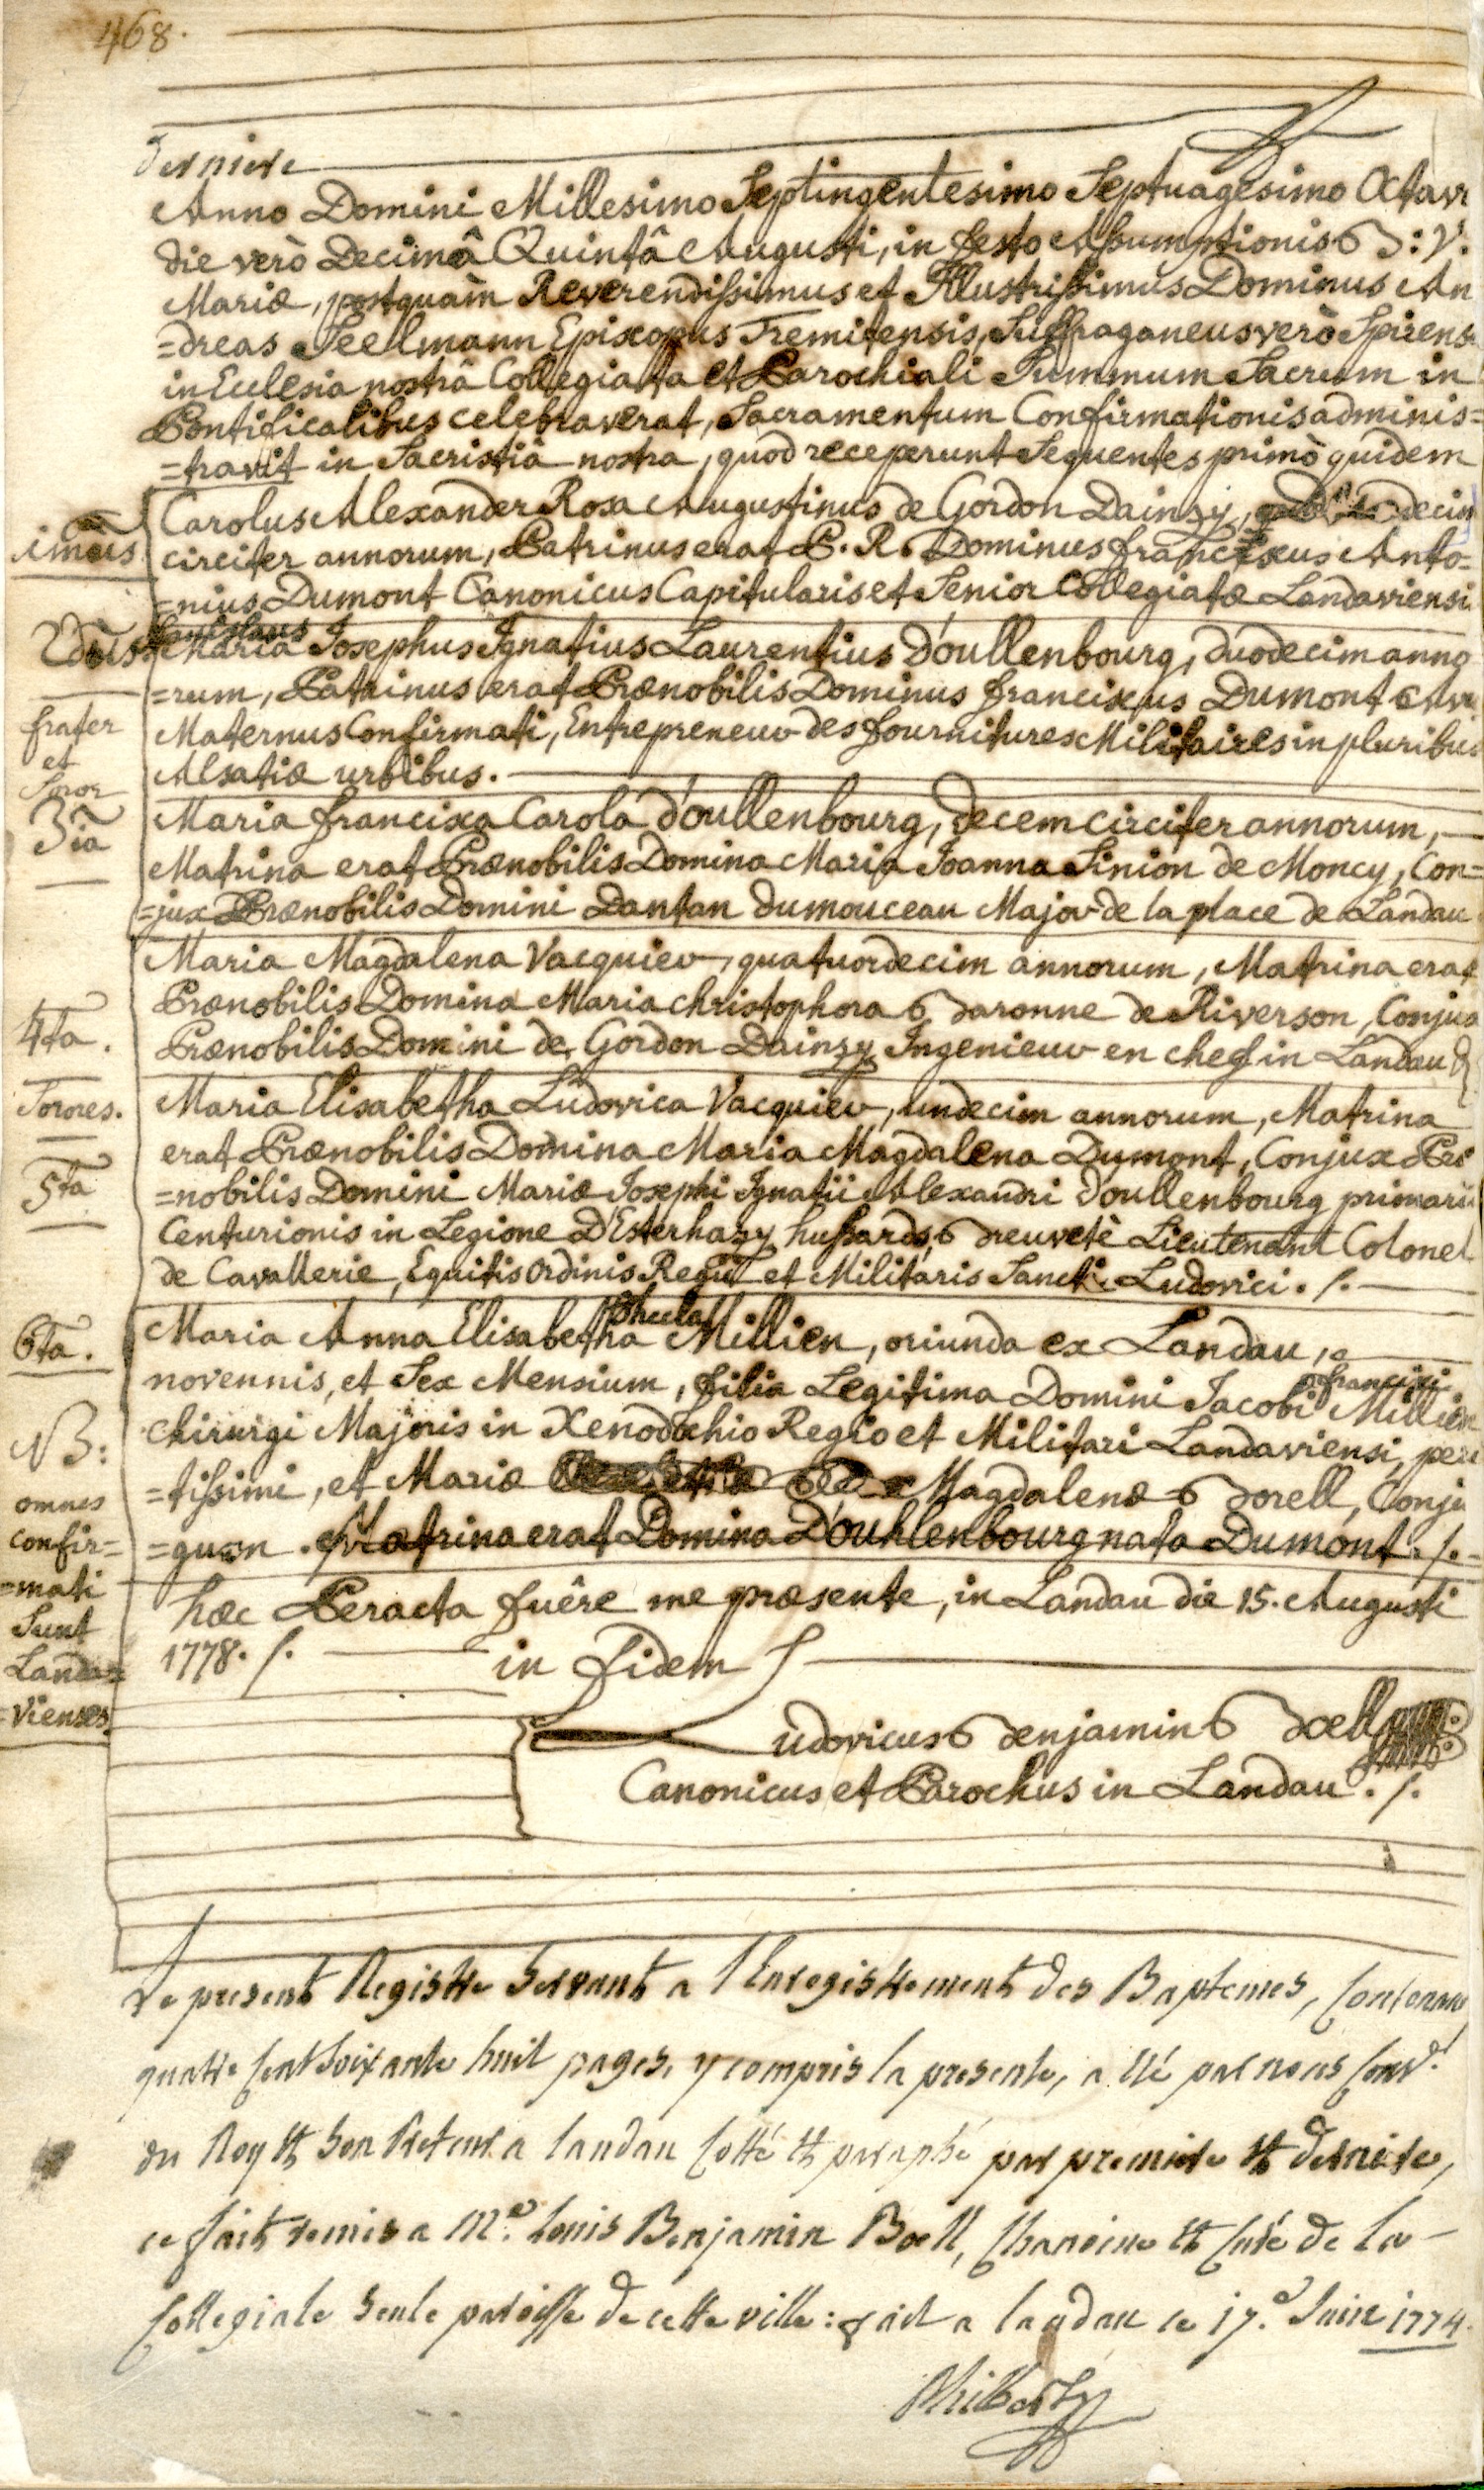 468.
derniere
Anno Domini Millesimo Septingentesimo Septuagesimo Octav
die verò Decimâ Quintâ Augusti, in festo Assumptionis B: V.
Mariæ, postquàm Reverendissimus et Illustrissimus Dominus An
=dreas Seelmann Episcopus Tremitensis, Suffraganeus verò Spirens
in Ecclesia nostrâ Collegiata et Parochiali Summum Sacrum in
Pontificalibus celebraverat, Sacramentum Confirmationis adminis=
=travit in Sacristiâ nostra, quod receperunt Sequentes primò quidem
imus
Carolus Alexander Rosa Augustinus de Gordon Dainzy, decim
circiter annorum, Patrinus erat P. R. Dominus franciscus Anto=
=nius Dumont Canonicus Capitularis et Senior Collegiatæ Landaviensi
2dus
Stanislaus
Maria Josephus Ignatius Laurentius D'oullenbourg, duodecim anno
=rum, Patrinus erat Prænobilis Dominus franciscus Dumont Avu
frater
et
Soror
Maternus Confirmati, Entrepreneur des fournitures Militaires in pluribus
Alsatiæ urbibus.
3ia
Maria francisca Carola d'oullenbourg, decem circiter annorum,
Matrina erat Prænobilis Domina Maria Joanna Sinion de Moncy, Con=
=jux Prænobilis Domini Dantan Dumouceau Major de la place de Landau
Maria Magdalena Vacquier, quatuordecim annorum, Matrina erat
4ta.
Prænobilis Domina Maria christophora Baronne de Riverson, Conjux
Prænobilis Domini de Gordon Dainzy Ingenieur en chef in Landau
Sorores.
5ta
Maria Elisabetha Ludovica Vacquier, undecim annorum, Matrina
erat Prænobilis Domina Maria Magdalena Dumont, Conjux Præ
=nobilis Domini Mariæ Josephi Ignatii Alexandri d'oullenbourg primarii
Centurionis in Legione D'Esterhazy hussards, Breuveté Lieutenant Colonel
de Cavallerie, Equitis Ordinis Regii et Militaris Sancti Ludovici. /.
6ta.
Thecla
Maria Anna Elisabetha Millien, oriunda ex Landau,
novennis, et Sex Mensium, filia Legitima Domini Jacobi francisci Millien
NB:
omnes
confir=
=mati
Sunt
Landa=
=vienses.
chirurgi Majoris in Xenodochio Regio et Militari Landaviensi, peri
=tissimi, et Mariæ Magdalenæ Borell, Conju
=gum. Matrina erat Domina D'ouhlenbourg nata Dumont. /.
hæc Peracta fuêre me præsente, in Landau die 15. Augusti
1778. /. in fidem
Ludovicus Benjamin Boell
Canonicus et Parochus in Landau. /.
Le present Registre Servant a l'Enregistrement des Baptemes, Contenant
quatre Cent Soixante huit pages, y compris la presente, a été par nous Cons.r
du Roy et Son Preteur a Landau Cotté et paraphé par premiere et derniere,
ce fait remis a M.e Louis Benjamin Boell, Chanoine et Curé de la
Collegiale Seule paroisse de cette ville: fait a Landau ce 17.e Juin 1774.